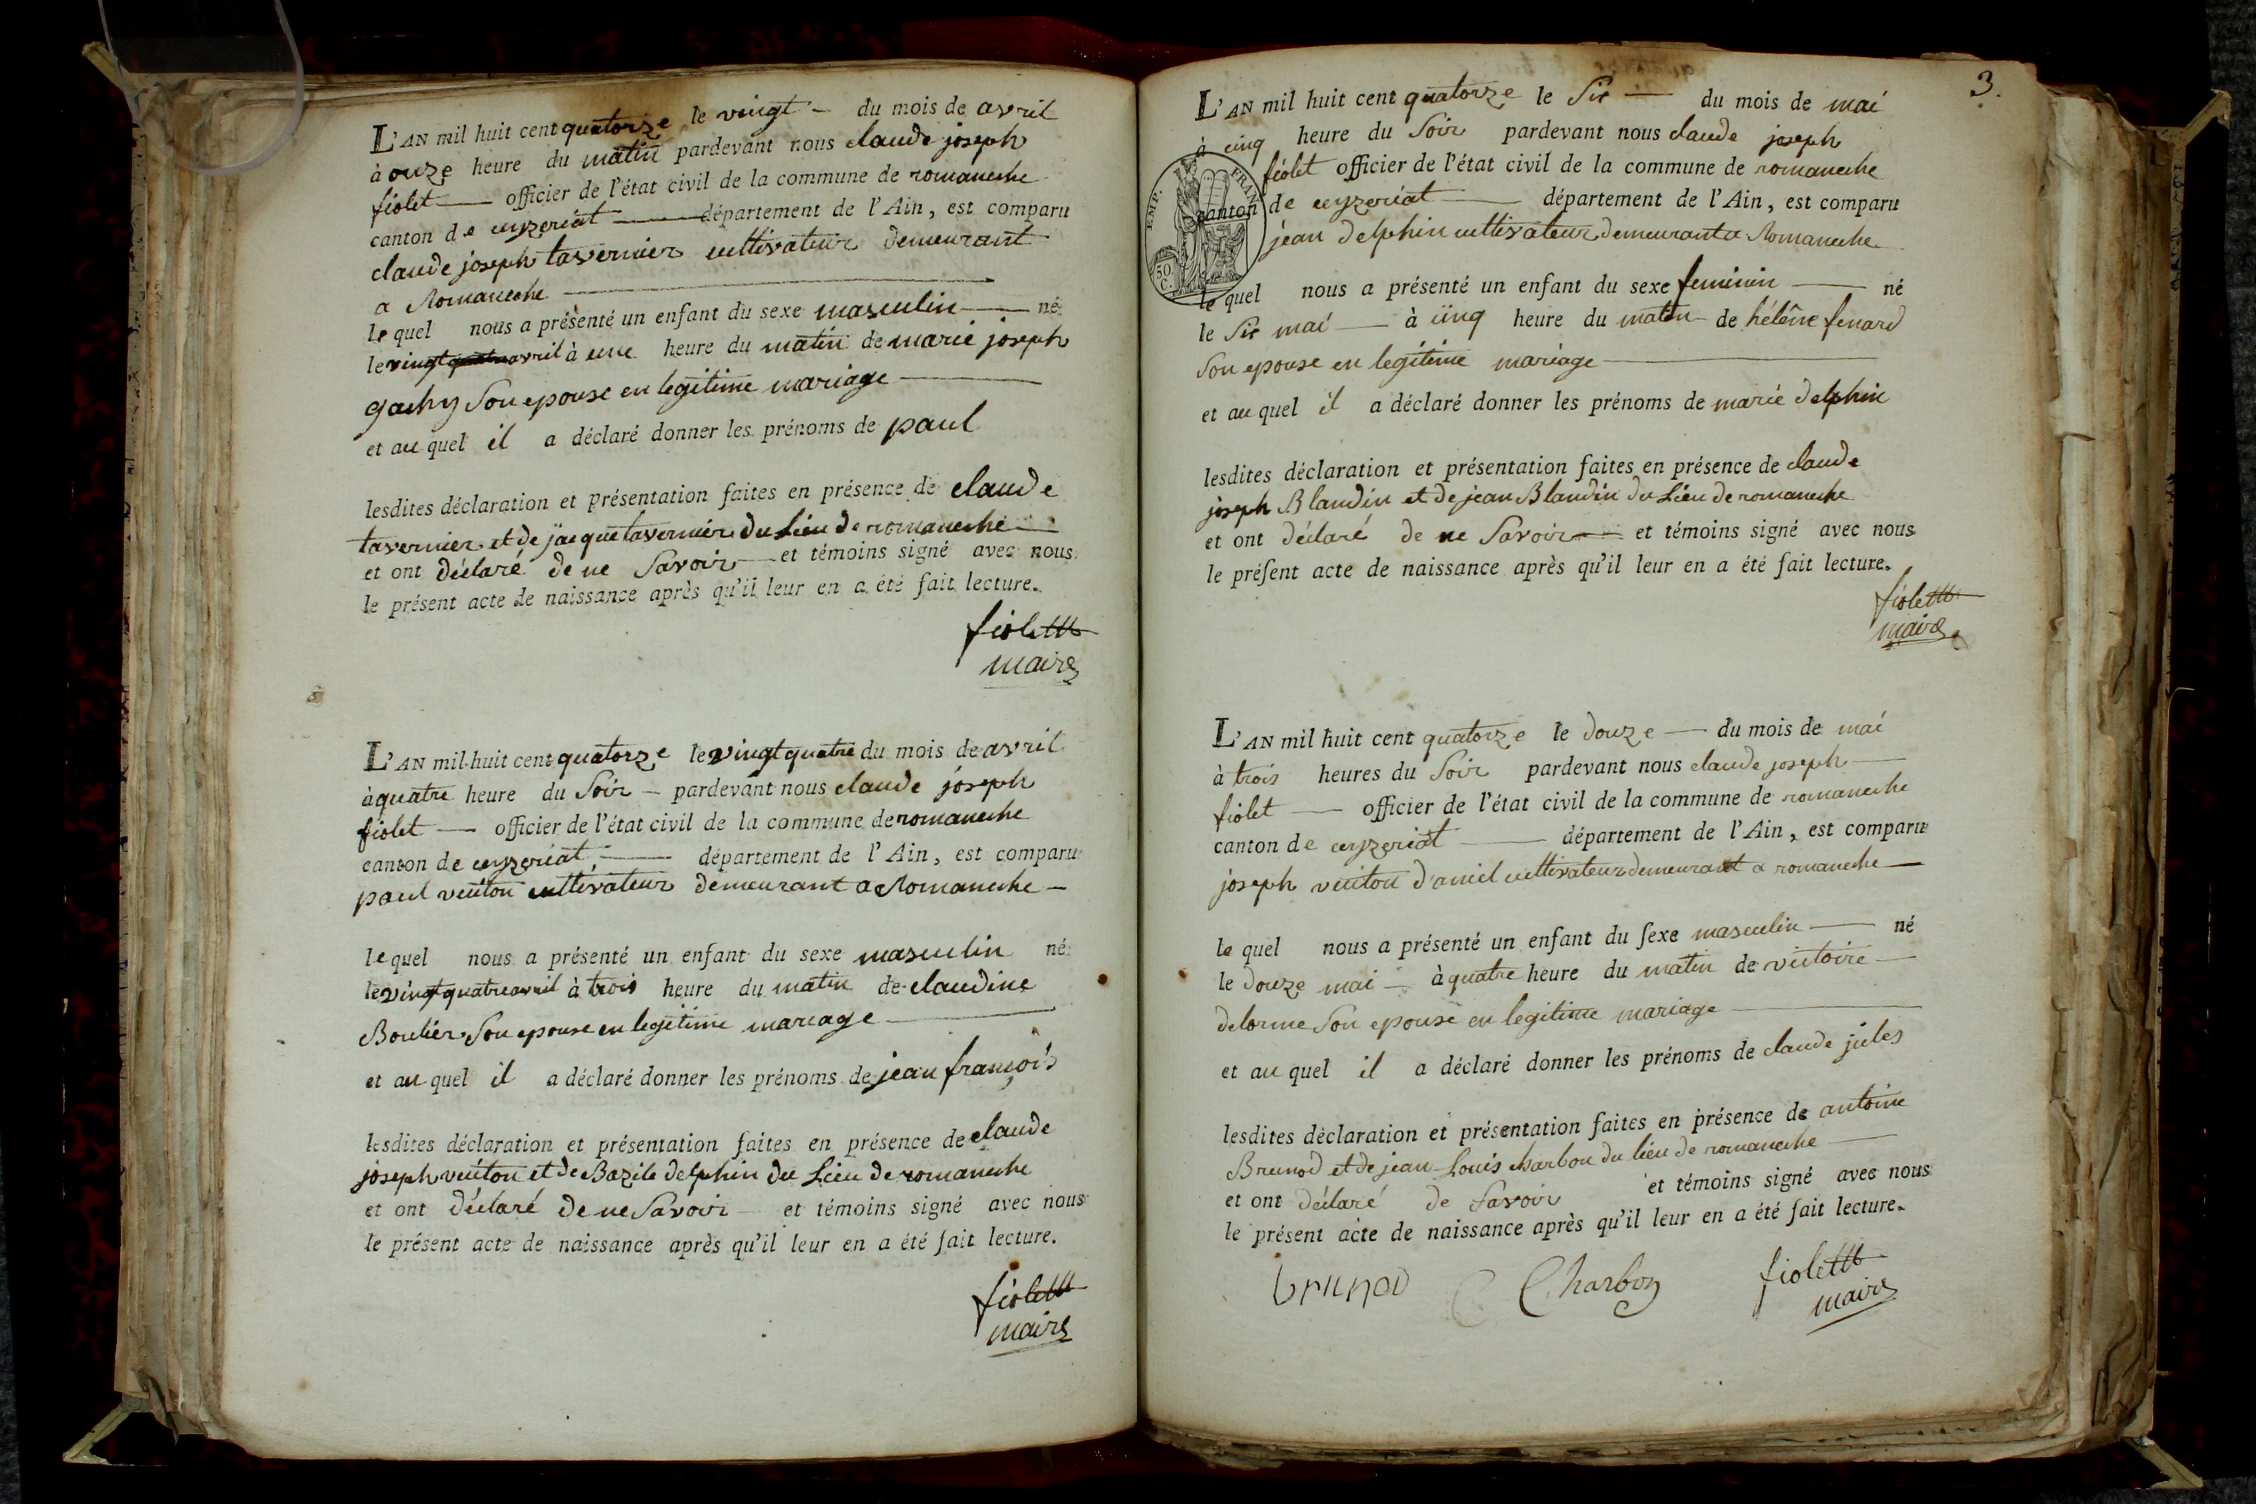 L'AN mil huit cent quatorze le vingt du mois de avril
à onze heure du matin pardevant nous claude joseph
fiolet officier de l'état civil de la commune de romaneche
canton de ceyzeriat département de l'Ain, est comparu
claude joseph tavernier cultivateur demeurant
a Romaneche
le quel nous a présenté un enfant du sexe masculin né
le vingt avril à une heure du matin de marie joseph
gachy Son epouse en legitime mariage
et au quel il a déclaré donner les prénoms de paul
lesdites déclaration et présentation faites en présence de claude
tavernier et de jacque tavernier du Lieu de romaneche
et ont déclaré de ne Savoir et témoins signé avec nous
le présent acte de naissance après qu'il leur en a été fait lecture.
fiolet
maire
L'AN mil huit cent quatorze le vingt quatre du mois de avril
à quatre heure du Soir pardevant nous claude joseph
fiolet officier de l'état civil de la commune de romaneche
canton de ceyzeriat département de l'Ain, est comparu
paul veuton cultivateur demeurant a Romaneche
le quel nous a présenté un enfant du sexe masculin né
le vingt quatre avril à trois heure du matin de claudine
Boulier Son epouse en legitime mariage
et au quel il a déclaré donner les prénoms de jean françois
lesdites déclaration et présentation faites en présence de claude
joseph veuton et de Bazile delphin du Lieu de romaneche
et ont déclaré de ne Savoir et témoins signé avec nous
le présent acte de naissance après qu'il leur en a été fait lecture.
fiolet
maire
3.
L'AN mil huit cent quatorze le Six du mois de mai
à cinq heure du Soir pardevant nous claude joseph
fiolet officier de l'état civil de la commune de romaneche
canton de ceyzeriat département de l'Ain, est comparu
jean delphin cultivateur demeurant a Romaneche
EMP. FRAN
50 C.
le quel nous a présenté un enfant du sexe feminin né
le Six mai à cinq heure du matin de hélène fenard
Son epouse en legitime mariage
et au quel il a déclaré donner les prénoms de marie delphin
lesdites déclaration et présentation faites en présence de claude
joseph Blandin et de jean Blandin du Lieu de romaneche
et ont déclaré de ne Savoir et témoins signé avec nous
le préſent acte de naissance après qu'il leur en a été fait lecture.
fiolet
maire
L'AN mil huit cent quatorze le douze du mois de mai
à trois heures du Soir pardevant nous claude joseph
fiolet officier de l'état civil de la commune de romaneche
canton de ceyzeriat département de l'Ain, est comparu
joseph veuton d'aniel cultivateur demeurant a romaneche
le quel nous a présenté un enfant du ſexe masculin né
le douze mai à quatre heure du matin de victoire
delorme Son epouse en legitime mariage
et au quel il a déclaré donner les prénoms de claude jules
lesdites déclaration et présentation faites en présence de antoine
Brunod et de jean Louis charbon du lieu de romaneche
et ont déclaré de Savoir et témoins signé avec nous
le présent acte de naissance après qu'il leur en a été fait lecture.
brunod Charbon fiolet
maire